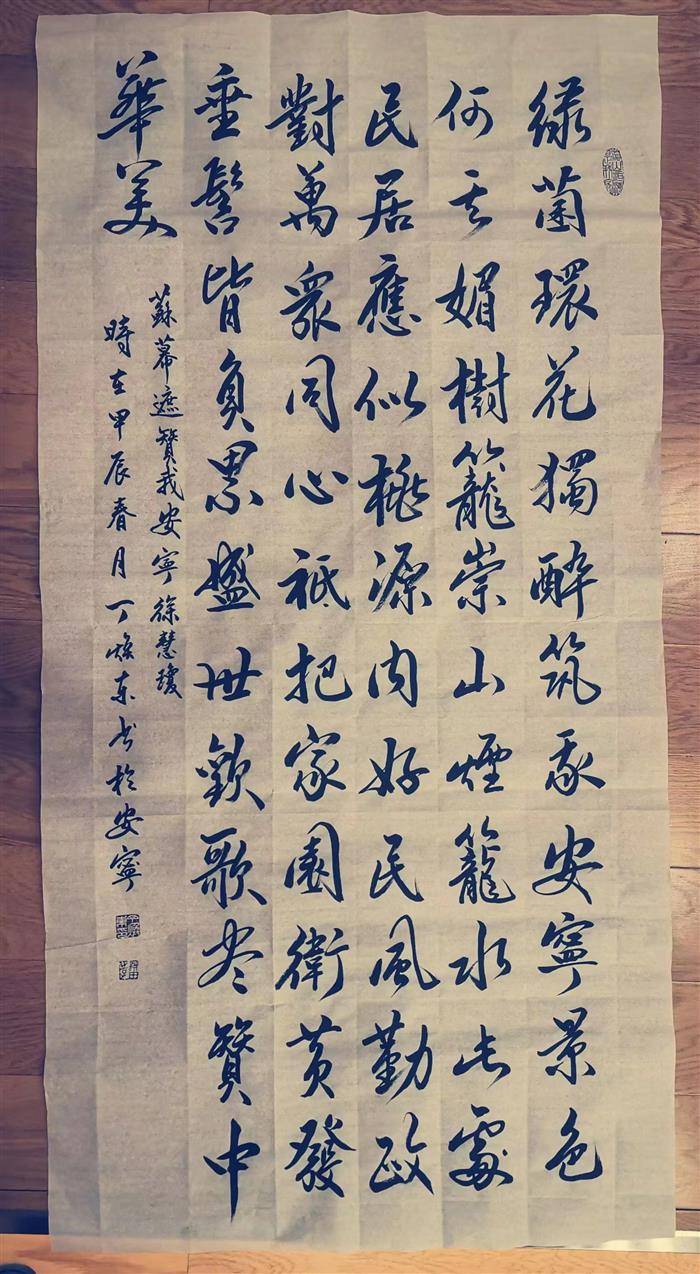 緑菌環花獨醉筑我安寧景色
何其媚樹籠崇山煙籠水此處
民居應似桃源内好民風勤政
對萬衆同心祗把家園衛黄發
垂髫皆負累盛世歡歌尽贊中
華美
蘇幕遮贊我安寧徐慧瓊
時在甲辰春月丁焕东书於安寧